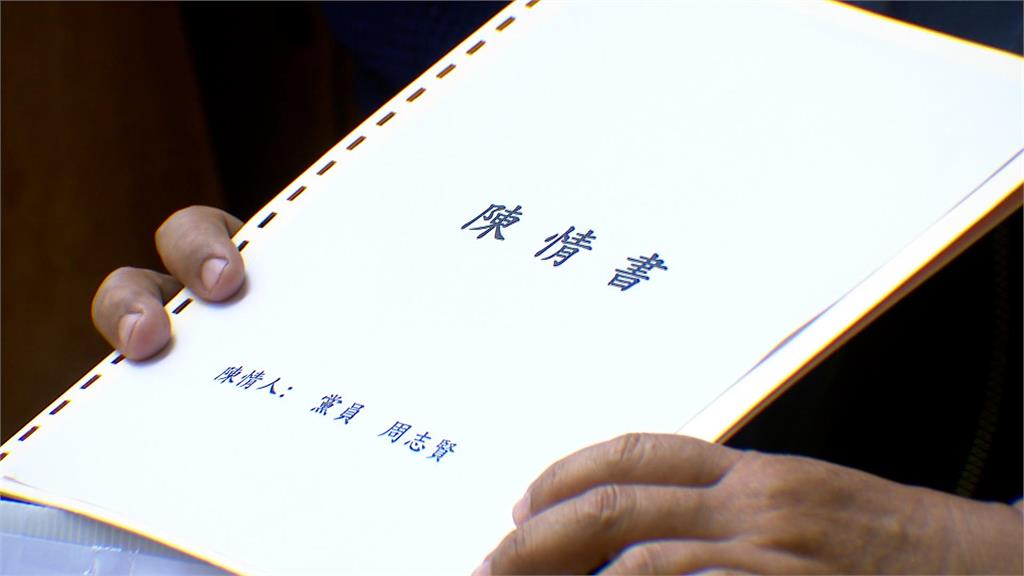 陳情書
陳情人： 黨員 周志賢